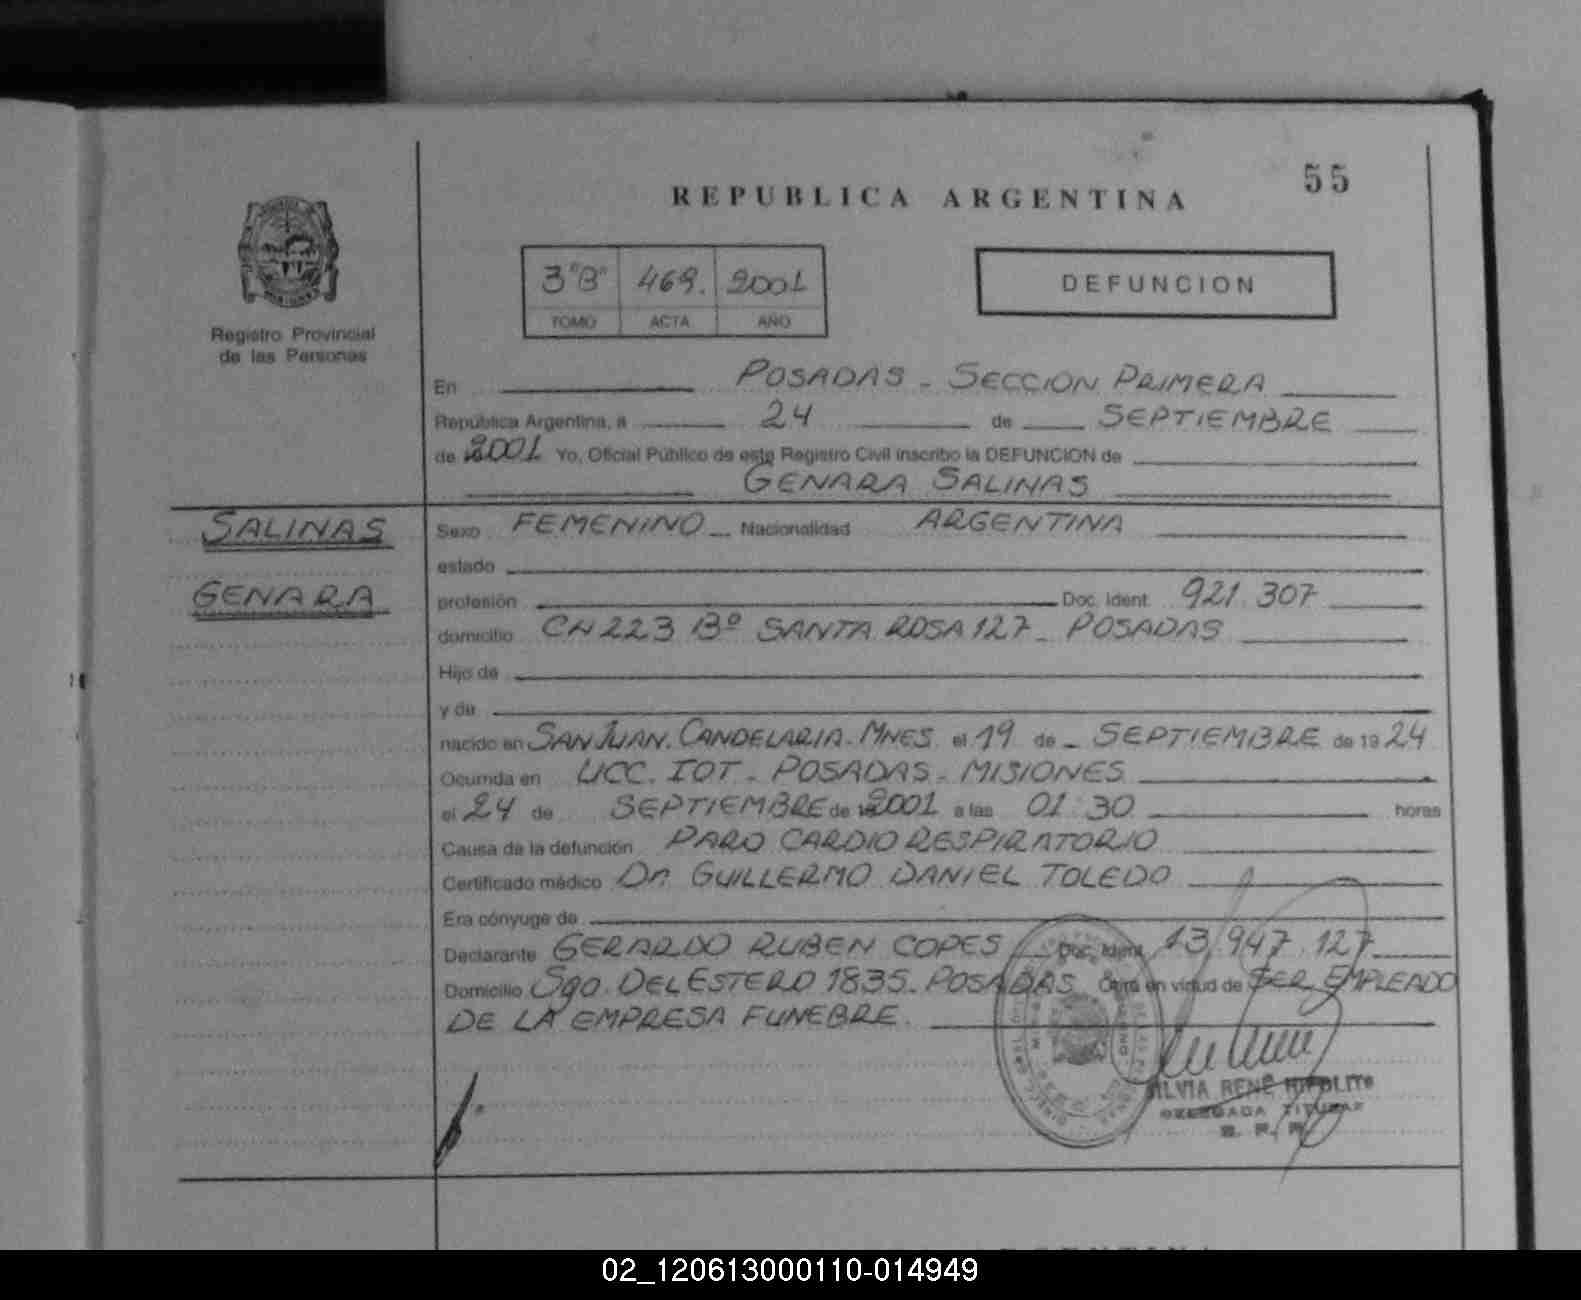 55
REPUBLICA ARGENTINA
Registro Provincial
de las Personas
3"B" 469. 2001
TOMO ACTA AÑO
DEFUNCION
En POSADAS - SECCION PRIMERA
República Argentina, a 24 de SEPTIEMBRE
de 2001 Yo, Oficial Público de este Registro Civil inscribo la DEFUNCION de
GENARA SALINAS
SALINAS
GENARA
Sexo FEMENINO Nacionalidad ARGENTINA
estado
profesión Doc. Ident. 921.307
domicilio CH 223 Bº SANTA ROSA 127 - POSADAS
Hijo de
y de
nacido en SAN JUAN. CANDELARIA - MNES. el 19 de SEPTIEMBRE de 1924
Ocurrida en UCC. IOT - POSADAS - MISIONES
el 24 de SEPTIEMBRE de 2001 a las 01:30 horas
Causa de la defunción PARO CARDIO RESPIRATORIO
Certificado médico Dr. GUILLERMO DANIEL TOLEDO
Era cónyuge de
Declarante GERARDO RUBEN COPES Doc. Ident. 13.947.127
Domicilio Sgo. DEL ESTERO 1835 - POSADAS Obra en virtud de SER EMPLEADO
DE LA EMPRESA FUNEBRE.
SILVIA RENÉ HIPOLITO
DELEGADA TITULAR
02_120613000110-014949